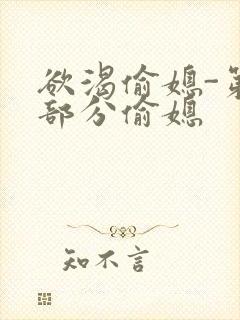 欲渴偷媳-第
部分偷媳
知不言